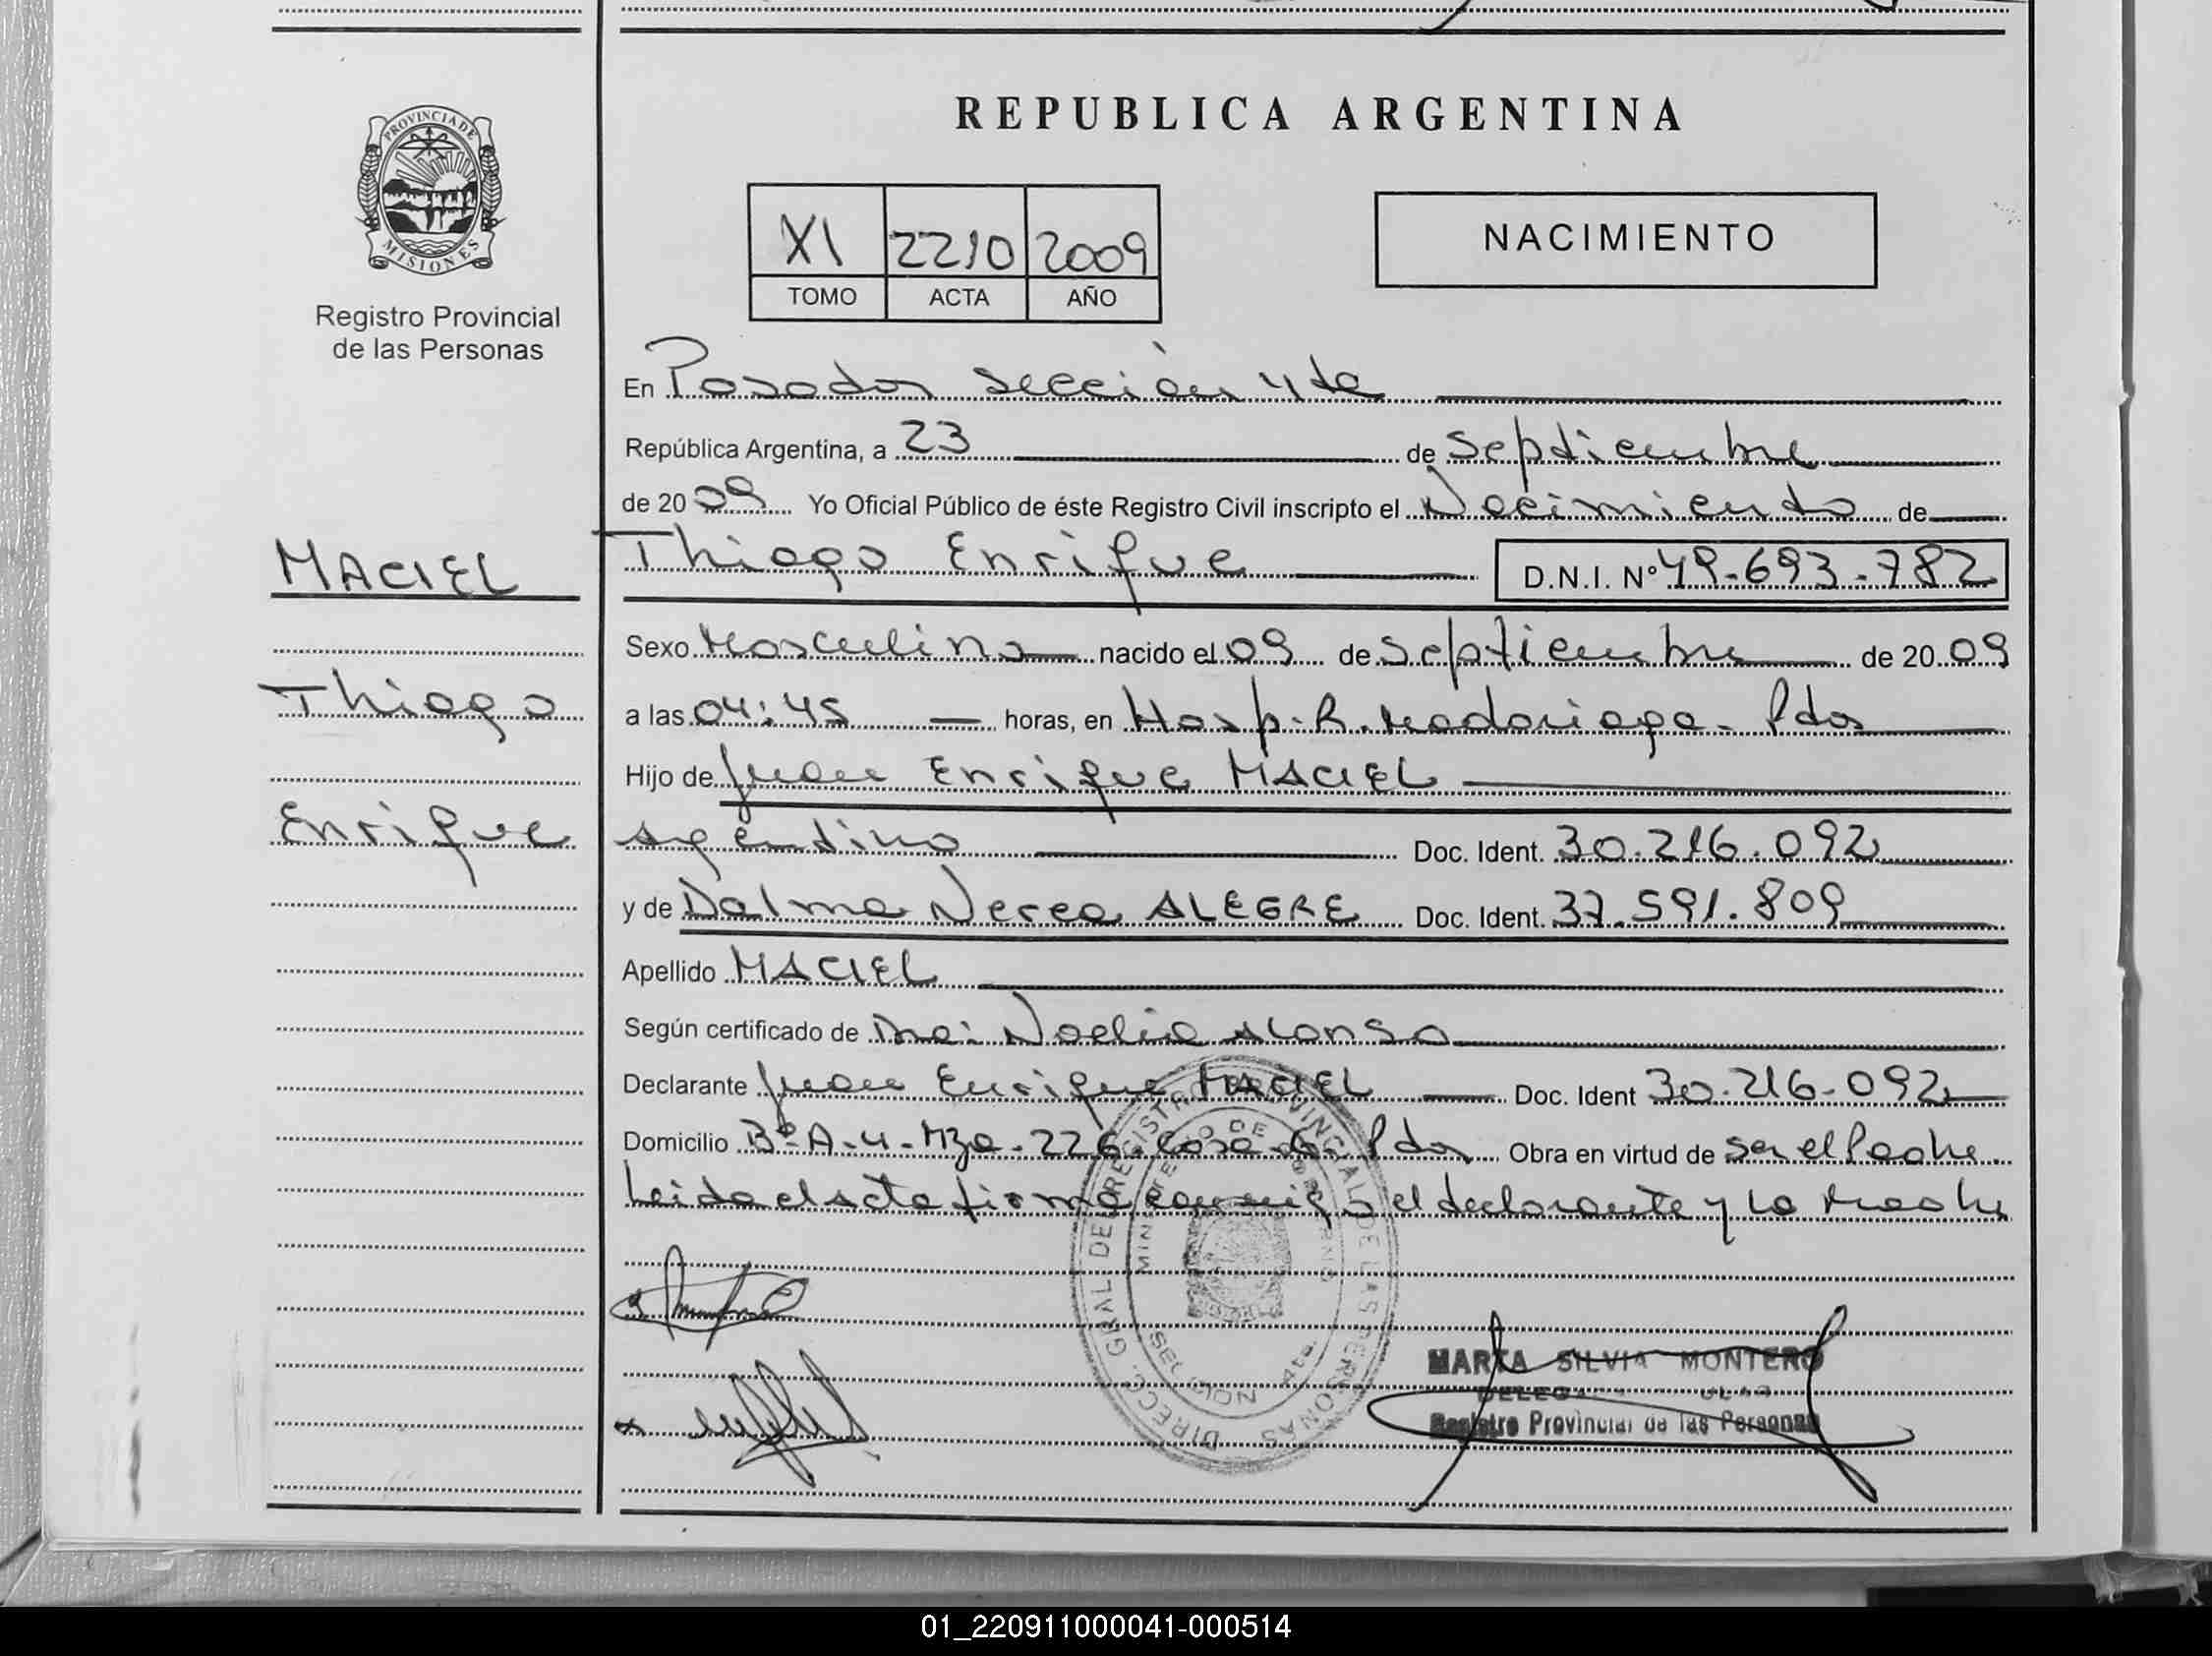 PROVINCIA DE
MISIONES
Registro Provincial
de las Personas
MACIEL
Thiago
Enrique
REPUBLICA ARGENTINA
XI 2210 2009
TOMO ACTA AÑO
NACIMIENTO
En Posadas sección 4ta
República Argentina, a 23 de Septiembre
de 2009 Yo Oficial Público de éste Registro Civil inscripto el Nacimiento de
Thiago Enrique D.N.I. Nº 49.693.782
Sexo Masculino nacido el 09 de Septiembre de 2009
a las 04:45 horas, en Hosp. R. Madariaga - Pdas
Hijo de Juan Enrique MACIEL
argentino Doc. Ident. 30.216.092
y de Dalma Nerea ALEGRE Doc. Ident. 37.591.809
Apellido MACIEL
Según certificado de Dra: Noelia Alonso
Declarante Juan Enrique MACIEL Doc. Ident 30.216.092
Domicilio Bº A-4-Mza-226-Casa-6- Pdas Obra en virtud de Ser el Padre
Leida el acta firma conmigo el declarante y la Madre
DIRECC. GRAL. DEL REGISTRO PROVINCIAL DE LAS PERSONAS
MINISTERIO DE GOBIERNO
SECCION 4ta.
MARTA SILVIA MONTERO
Registro Provincial de las Personas
01_220911000041-000514